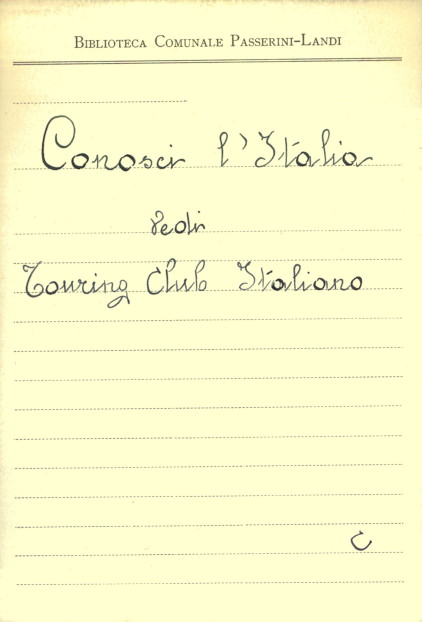 Biblioteca Comunale Passerini-Landi
Conosci l'Italia
vedi
Touring Club Italiano
C